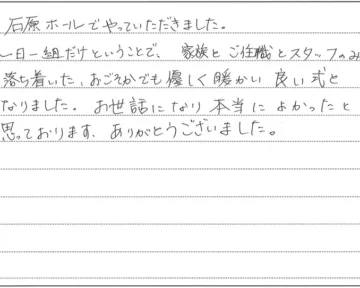 石原ホールでやっていただきました。
一日一組だけということで、家族とご住職とスタッフのみ
落ち着いた、おごそかでも優しく暖かい良い式と
なりました。お世話になり本当によかったと
思っております。ありがとうございました。